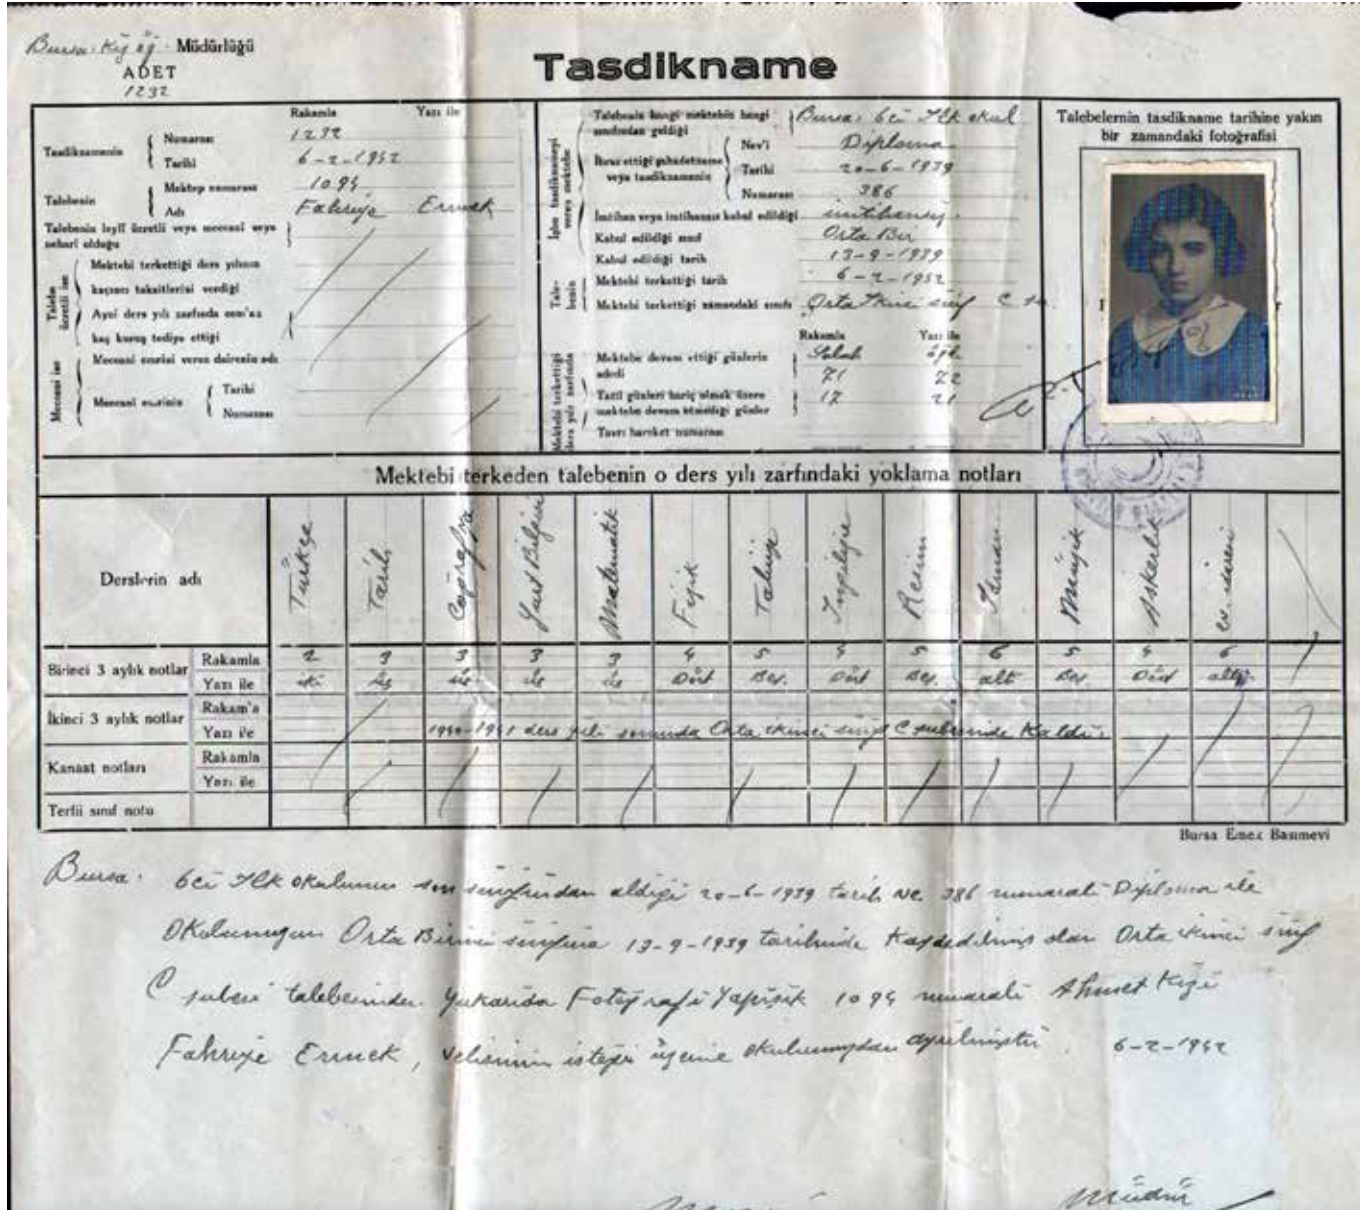 Bursa Kız öğ. Müdürlüğü
ADET
1232
Tasdikname
Rakamla Yazı ile
Tasdiknamenin
Numarası 1232
Tarihi 6-2-1942
Talebenin
Mektep numarası 1094
Adı Fahriye Ermek
Talebenin leylî ücretli veya meccanî veya neharî olduğu
Talebe ücretli ise
Mektebi terkettiği ders yılının
kaçıncı taksitlerini verdiği
Ayni ders yılı zarfında cem'an
kaç kuruş tediye ettiği
Meccani ise
Meccani emrini veren dairenin adı
Meccanî emrinin
Tarihi
Numarası
İşbu tasdiknameyi veren mektebe
Talebenin hangi mektebin hangi sınıfından geldiği Bursa: 6cı İlk okul
İbraz ettiği şahadetname veya tasdiknamenin
Nev'i Diploma
Tarihi 20-6-1939
Numarası 386
İmtihan veya imtihansız kabul edildiği imtihansız.
Kabul edildiği sınıf Orta Bir
Kabul edildiği tarih 13-9-1939
Talebenin
Mektebi terkettiği tarih 6-2-1942
Mektebi terkettiği zamandaki sınıfı Orta İkinci sınıf C
Rakamla Yazı ile
Mektebi terkettiği ders yılı zarfında
Mektebe devam ettiği günlerin adedi Sabah öğle
71 72
Tatil günleri hariç olmak üzere mektebe devam etmediği günler 17 21
Tavrı hareket numarası
Talebelernin tasdikname tarihine yakın
bir zamandaki fotoğrafisi
Mektebi terkeden talebenin o ders yılı zarfındaki yoklama notları
Derslerin adı Türkçe Tarih Coğrafya Yurt Bilgisi Matematik Fizik Tabiiye İngilizce Resim Jimnas Müzik Askerlik ev idaresi
Birinci 3 aylık notlar
Rakamla 2 3 3 3 3 4 5 4 5 6 5 4 6
Yazı ile iki üç üç üç üç Dört Beş. Dört Beş. altı Beş. Dört altı
İkinci 3 aylık notlar
Rakam'a
Yazı ile 1940-1941 ders yılı sonunda Orta ikinci sınıf C şubesinde Kaldı.
Kanaat notları
Rakamla
Yazı ile
Terfii sınıf notu
Bursa Emek Basımevi
Bursa: 6cı İlk okulunun son sınıfından aldığı 20-6-1939 tarih ve 386 numaralı Diploma ile
Okulumuzun Orta Birinci sınıfına 13-9-1939 tarihinde Kaydedilmiş olan Orta ikinci sınıf
C şubesi talebesinden yukarıda Fotoğrafı Yapışık 1094 numaralı Ahmet Kızı
Fahriye Ermek, velisinin isteği üzerine okulumuzdan ayrılmıştır. 6-2-1942
Müdür